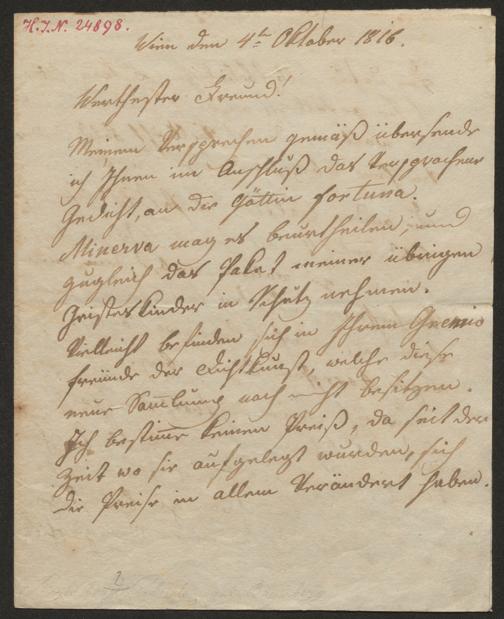 H.I.N. 24898.
Wien den 4ten Oktober 1816.
Werthester Freund!
Meinem Versprechen gemäß übersende
ich Ihnen im Anschluß das versprochene
Gedicht, an die Göttin fortuna.
Minerva mag es beurtheilen, und
zugleich das Paket meiner übrigen
Geisteskinder in Schutz nehmen.
Vielleicht befinden sich in Ihrem Gremio
freünde der Dichtkunst, welche diese
neue Samlung noch nicht besitzen.
Ich bestimme keinen Preiß, da seit der
Zeit wo sie aufgelegt wurden, sich
die Preise in allem verändert haben.